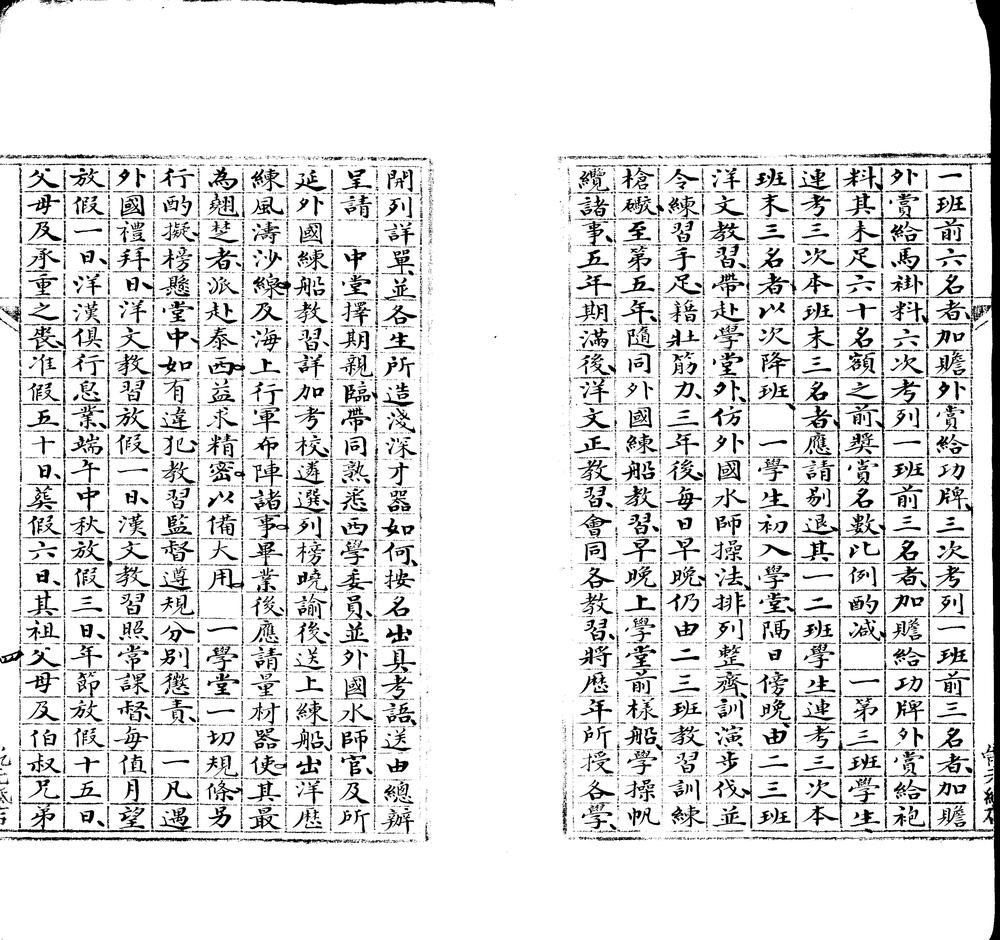 一班前六名者、加贍外賞給功牌、三次考列一班前三名者、加贍
外賞給馬褂料、六次考列一班前三名者、加贍給功牌外賞給袍
料、其未足六十名額之前、奬賞名數、比例酌減、一第三班學生
連考三次本班末三名者、應請剔退、其一二班學生連考三次本
班末三名者、以次降班、一學生初入學堂、隔日傍晚、由二三班
洋文教習、帶赴學堂外、仿外國水師操法、排列整齊、訓演步伐、並
令練習手足、藉壯筋力、三年後、每日早晚、仍由二三班教習訓練
槍礮、至第五年、隨同外國練船教習、早晚上學堂前樣船、學操帆
纜諸事、五年期滿後、洋文正教習、會同各教習、將歷年所授各學、
開列詳單、並各生所造淺深才器如何、按名出具考語、送由總辦
呈請　中堂擇期親臨、帶同熟悉西學委員、並外國水師官、及所
延外國練船教習、詳加考校、遴選列榜曉諭後、送上練船、出洋歷
練風濤沙線、及海上行軍布陣諸事、畢業後、應請量材器使、其最
為翹楚者、派赴泰西、益求精密、以備大用、　一學堂一切規條、另
行酌擬、榜懸堂中、如有違犯、教習監督遵規分別懲責、　一凡遇
外國禮拜日、洋文教習放假一日、漢文教習照常課督、每值月望
放假一日、洋漢俱行息業、端午中秋放假三日、年節放假十五日、
父母及承重之喪、准假五十日、葬假六日、其祖父母及伯叔兄弟
四